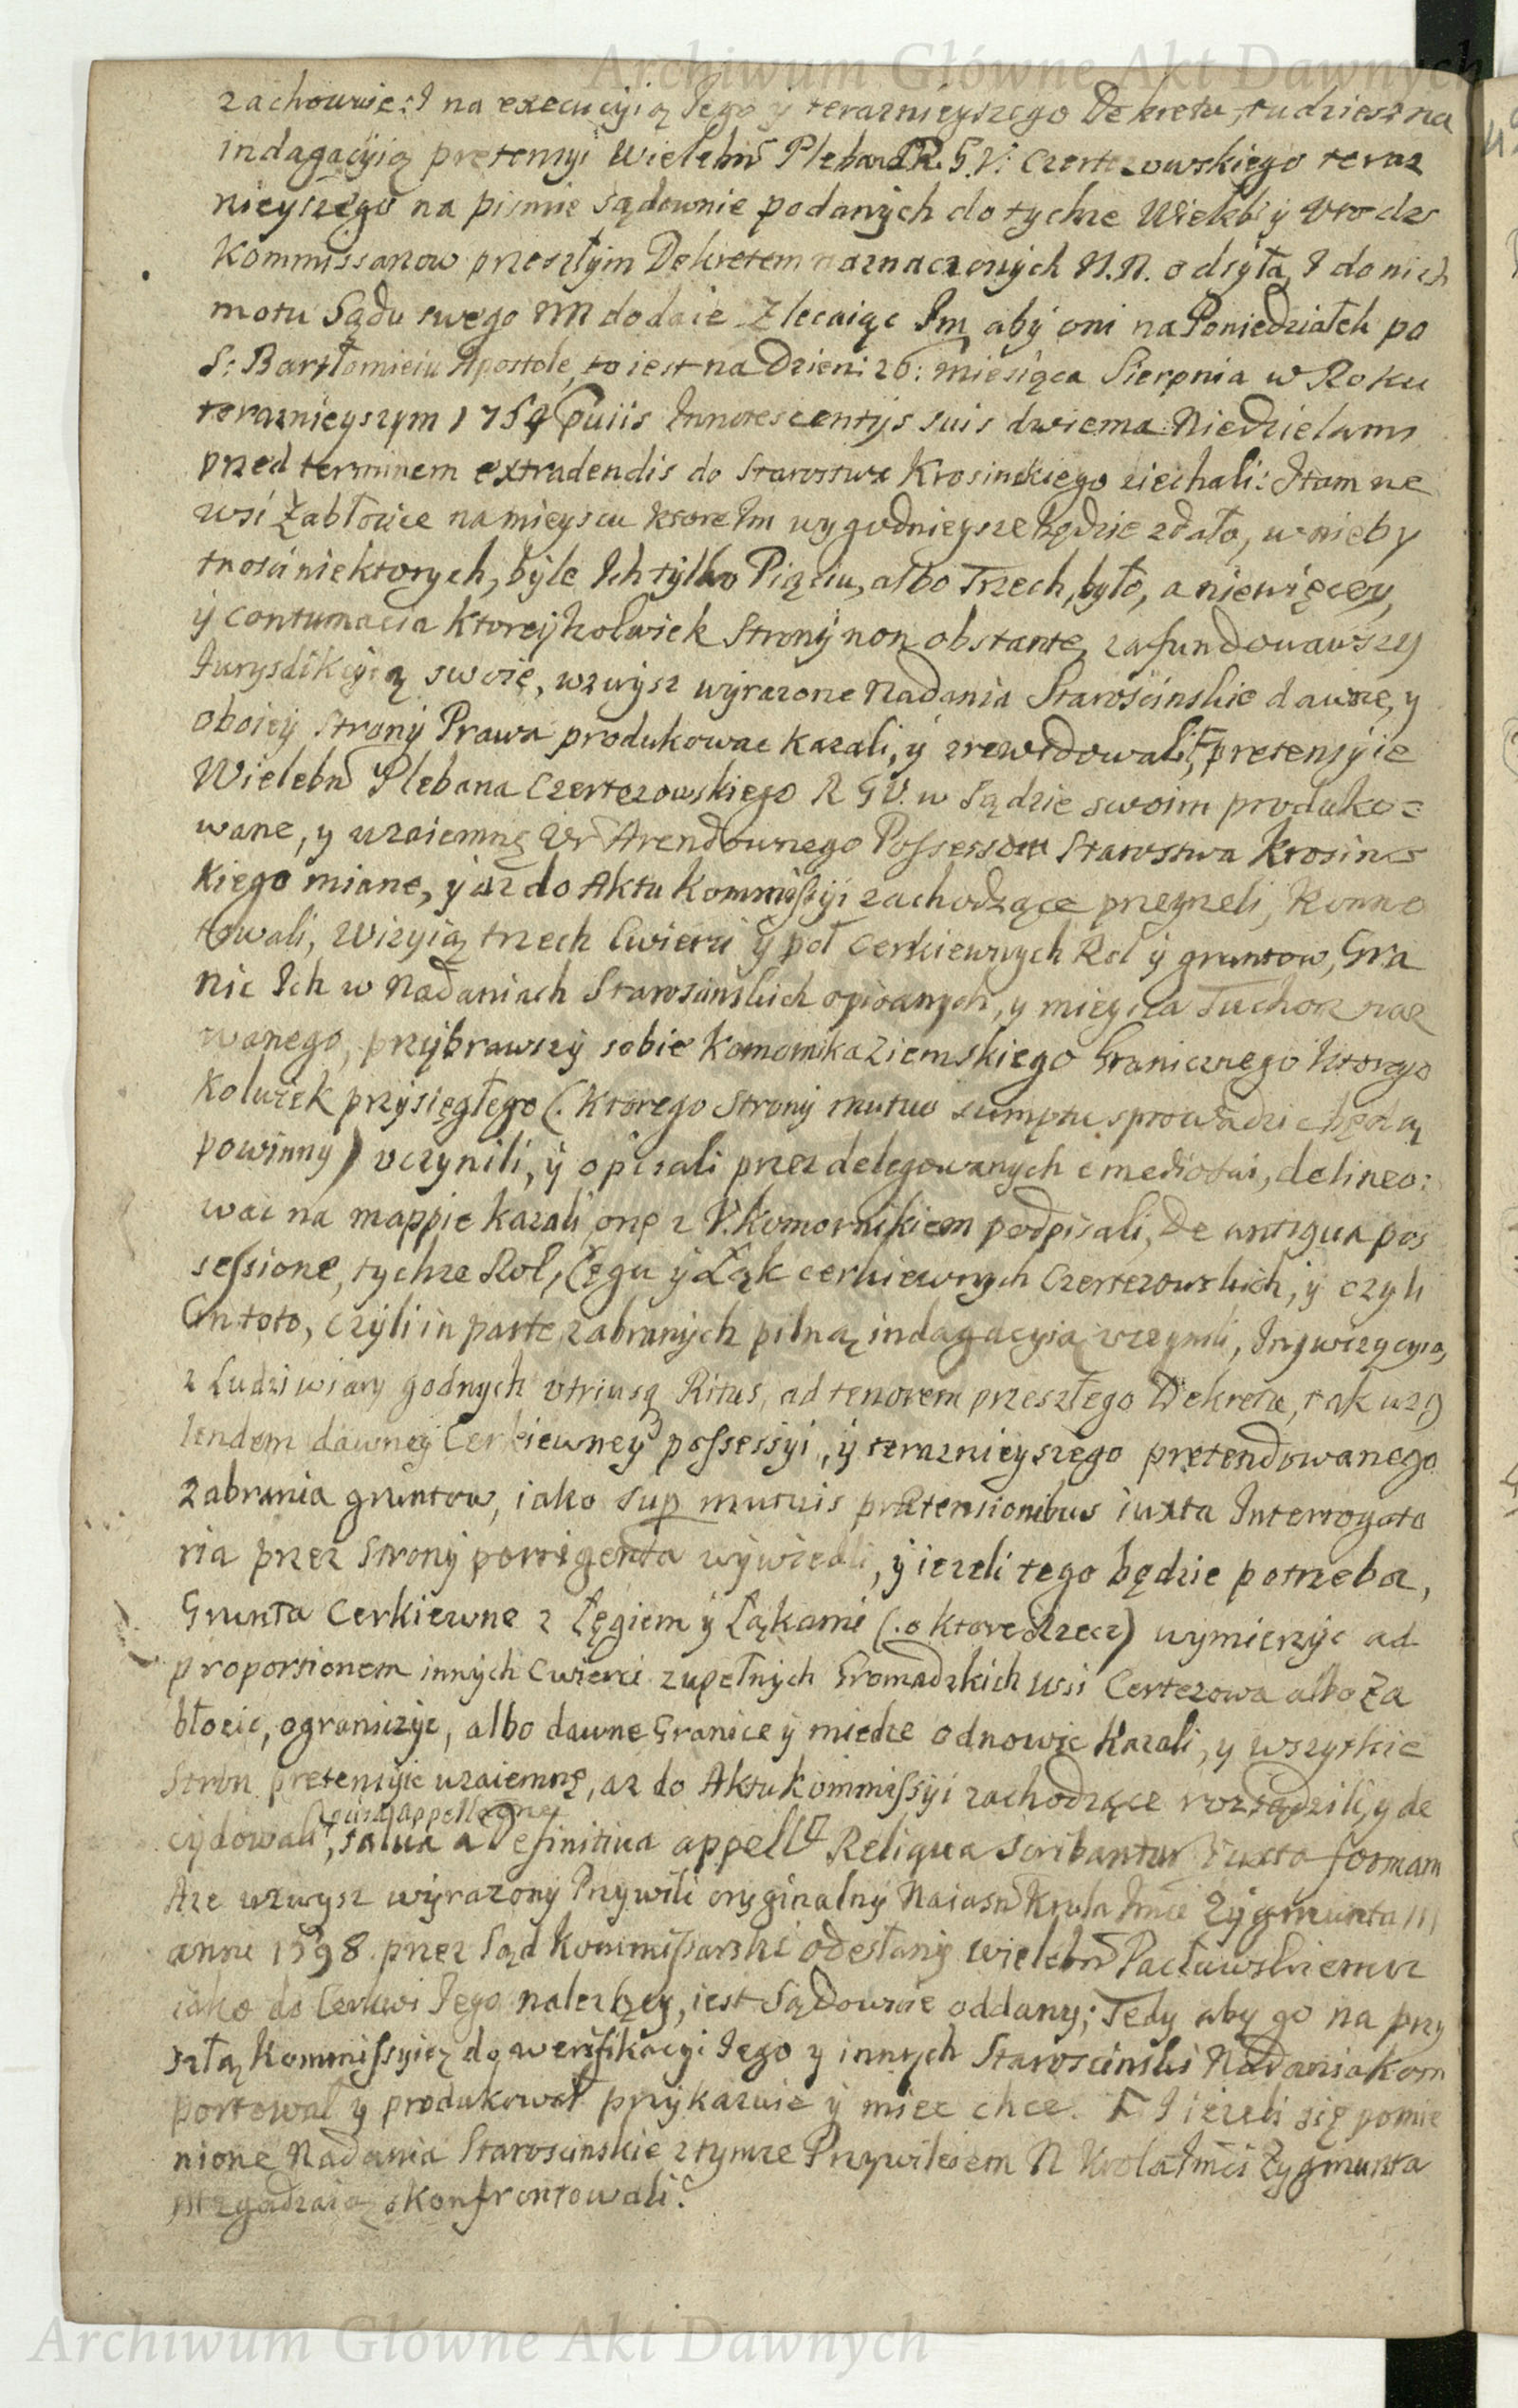 Archiwum Główne Akt Dawnych
zachowuie: I na execucyią Jego y teraznieyszego Dekretu, tudziesz na
indagacyią pretensyi Wielebn Plebana R. G. V. Czertezowskiego teraz
nieyszego na pismie sądownie podanych do tychze Wielebn y Vrodz
Kommissarzow przeszłym Dekretem naznaczonych N.N. odsyła, I do nich
motu Sądu swego NN dodaie Zlecaiąc Im, aby oni na Poniedziałek po
S: Bartłomieiu Apostole, to iest na Dzien: 26: miesiąca Sierpnia w Roku
teraznieyszym 1754 Innotescentijs suis dwiema Niedzielami
przed terminem extradendis do Starostwa Krosinskiego ziechali: I tam we
wsi Zabłocie na mieyscu ktore Im wygodnieysze będzie zdało, w nieby
tnosci niektorych, byle Ich tylko Pięciu, albo Trzech, było, a niewięcey,
y contumacia ktoreykolwiek Strony non obstante, zafundowawszy
Jurysdikcyią swoię, wzwysz wyrazone Nadania Starościnskie dawne, y
oboiey Strony Prawa produkowac kazali, y zrewidowali, pretensyie
Wielebn Plebana Czertezowskiego R G V. w Sądzie swoim produko=
wane, y uzaiemnę Ur Arendownego Possessora Starostwa Krosins
kiego miane, y az do Aktu Kommissyi zachodzące przeyzreli, Konno
towali, Wizyią trzech Cwierci y poł Cerkiewnych Rol y gruntow, Gra
nic Ich w Nadaniach Starościnskich opisanych, y mieysca Tuchorz naz
wanego, przybrawszy sobie Komornika Ziemskiego Granicznego ktorego
kolwiek przysięgłego (. Ktorego Strony mutuo sumptu sprowadzic będą
powinny) vczynili, y opisali przez delegowanych e medio sui, delineo:
wac na mappie kazali, onę z V. Komornikiem podpisali, De antiqua pos
sessione, tychze Rol, Łęgu y Łąk cerkiewnych Czertezowskich, y czyli
in toto, czyli in parte, zabranych pilną indagacyią vczynili, Inqwizycyią,
z Ludzi wiary godnych vtriusq Ritus, ad tenorem przeszłego Dekretu, tak wzg
lendem dawney Cerkiewney possessyi, y teraznieyszego pretendowanego
zabrania gruntow, iako sup mutuis prætensionibus iuxta Interrogato
ria przez Strony porrigenta wywiedli, y iezeli tego będzie potrzeba,
Grunta Cerkiewne z Łęgiem y Łąkami (. o ktore Rzecz) wymierzyc ad
proporsionem innych Cwierci zupełnych Gromadzkich wsi Certezowa albo Za
błocic, ograniczyc, albo dawne Granice y miedze odnowic kazali, y wszystkie
Stron pretensyie uzaiemnę, az do Aktu kommissyi zachodzące rozsądzili, y de
cydowali, salva a Definitiva appell Reliqua scribantur iuxta formam
Aze wzwysz wyrazony Przywili oryginalny Naiasn Krola Imci Zygmunta III
anni 1598 przez Sąd Kommissarski odesłany Wielebn Pacławskiemu
iako do Cerkwi Jego nalezący, iest Sądownie oddany; Tedy aby go na przy
szłą Kommissyią do weryfikacyi Jego y innych Starościnski Nadania kom
portował y produkował przykazuie y miec chce. I iezeli się pomie
nione Nadania Starościnskie z tymze Przywileiem N Krola Imci Zygmunta
III zgadzaią skonfrontowali.
Archiwum Główne Akt Dawnych